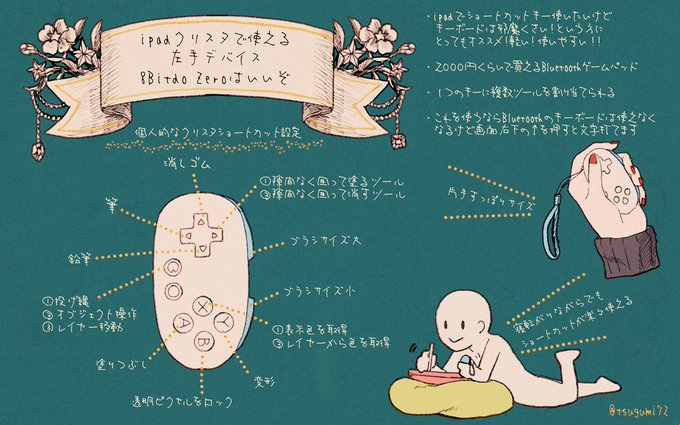 ipadクリスタで使える
左手デバイス
8Bitdo Zeroはいいぞ
・ipadでショートカットキー使いたいけど
キーボードは邪魔くさい！という方に
とってもオススメ！軽い！使いやすい！！
・2000円くらいで買えるBluetoothゲームパッド
・1つのキーに複数ツールを割り当てられる
・これを使うならBluetoothのキーボードは使えなく
なるけど画面右下の↑を押すと文字打てます
個人的なクリスタショートカット設定
消しゴム
①隙間なく囲って塗るツール
②隙間なく囲って消すツール
筆
鉛筆
ブラシサイズ大
ブラシサイズ小
①投げ縄
②オブジェクト操作
③レイヤー移動
①表示色を取得
②レイヤーから色を取得
塗りつぶし
変形
透明ピクセルをロック
X
A
Y
B
片手すっぽりサイズ
寝転がりながらでも
ショートカットが楽々使える
@tsugumi72